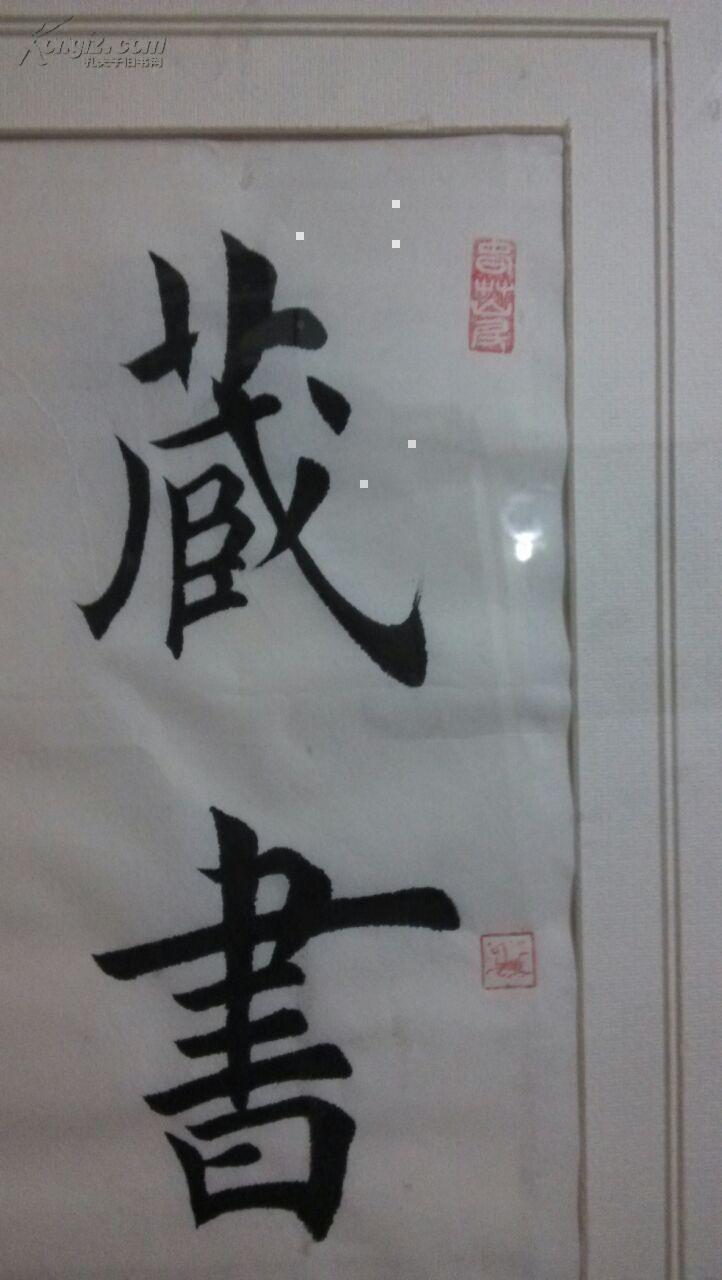 Kongfz.com
孔夫子旧书网
藏書